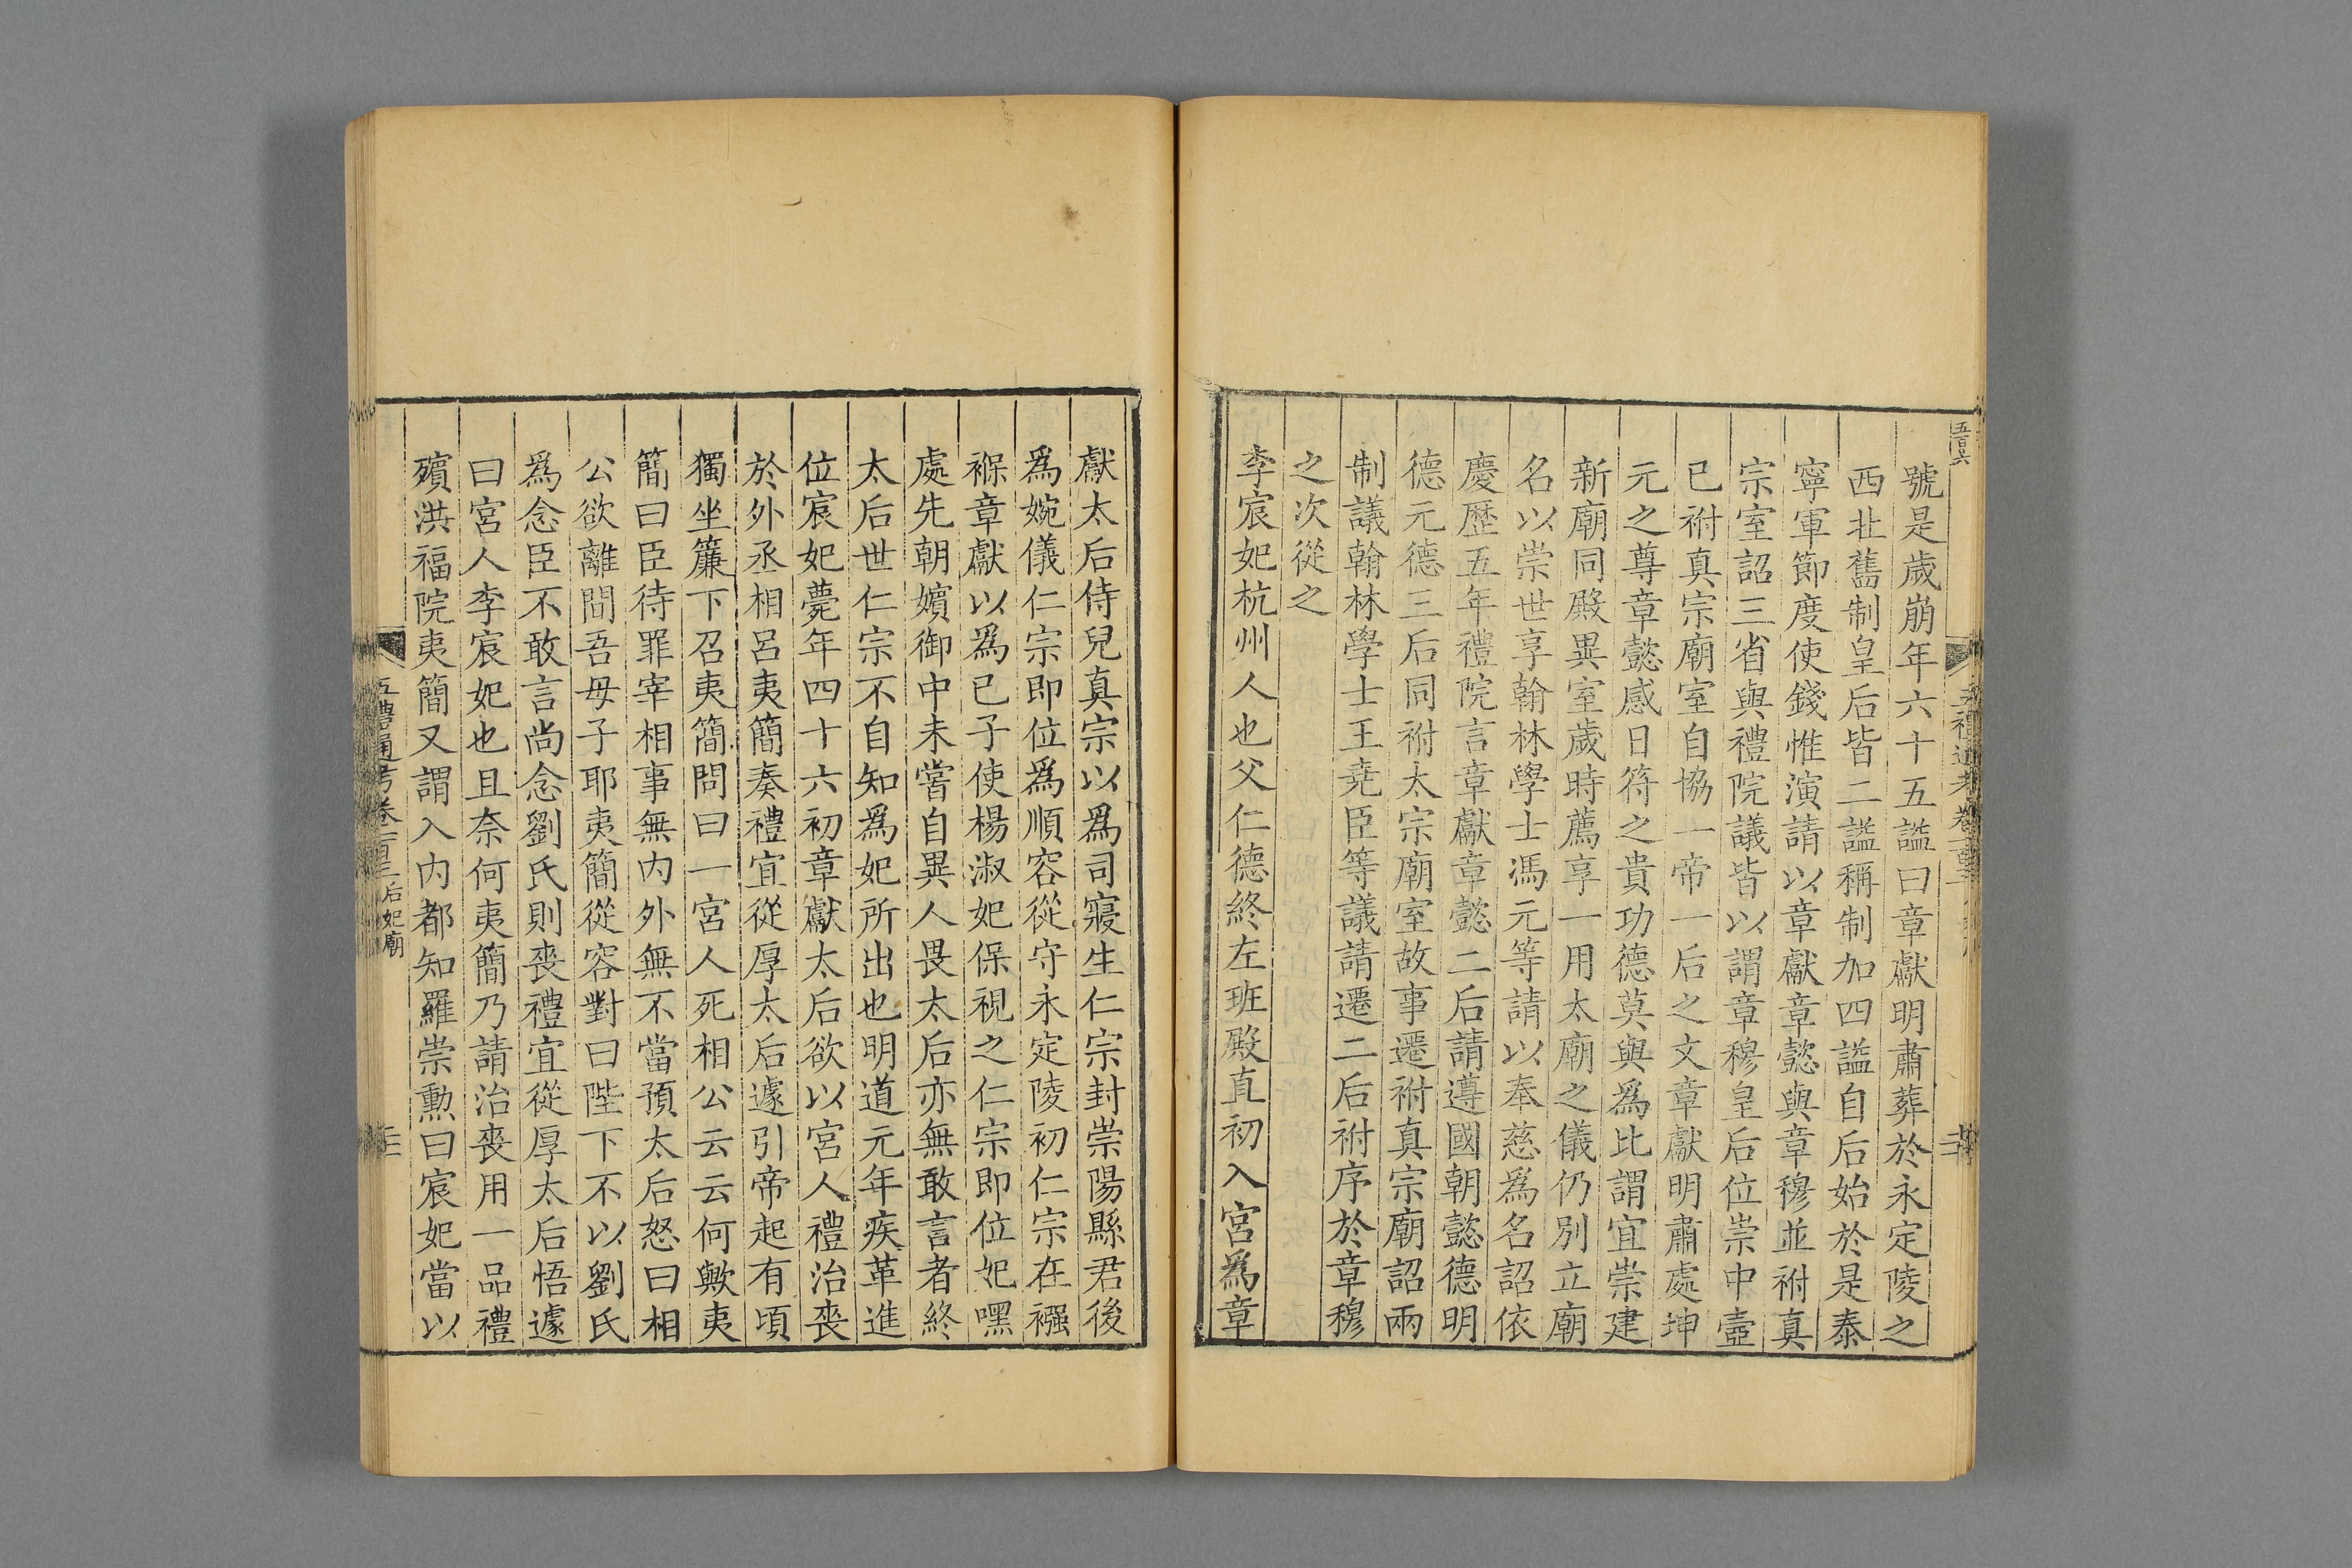 號是歲崩年六十五謚曰章獻明肅葬於永定陵之
西北舊制皇后皆二謚稱制加四謚自后始於是泰
寧軍節度使錢惟演請以章獻章懿與章穆並祔真
宗室詔三省與禮院議皆以謂章穆皇后位崇中壼
已祔真宗廟室自協一帝一后之文章獻明肅處坤
元之尊章懿感日符之貴功德莫與爲比謂宜崇建
新廟同殿異室歲時薦享一用太廟之儀仍別立廟
名以崇世享翰林學士馮元等請以奉慈爲名詔依
慶歷五年禮院言章獻章懿二后請遵國朝懿德明
德元德三后同祔太宗廟室故事遷祔真宗廟詔兩
制議翰林學士王堯臣等議請遷二后祔序於章穆
之次從之
李宸妃杭州人也父仁德終左班殿直初入宮爲章
獻太后侍兒真宗以爲司寢生仁宗封崇陽縣君後
爲婉儀仁宗即位爲順容從守永定陵初仁宗在襁
褓章獻以爲已子使楊淑妃保視之仁宗即位妃嘿
處先朝嬪御中未嘗自異人畏太后亦無敢言者終
太后世仁宗不自知爲妃所出也明道元年疾革進
位宸妃薨年四十六初章獻太后欲以宮人禮治喪
於外丞相呂夷簡奏禮宜從厚太后遽引帝起有頃
獨坐簾下召夷簡問曰一宮人死相公云云何歟夷
簡曰臣待罪宰相事無内外無不當預太后怒曰相
公欲離間吾母子耶夷簡從容對曰陛下不以劉氏
爲念臣不敢言尚念劉氏則喪禮宜從厚太后悟遽
曰宮人李宸妃也且奈何夷簡乃請治喪用一品禮
殯洪福院夷簡又謂入内都知羅崇勲曰宸妃當以
五禮通考卷一百三 后妃廟